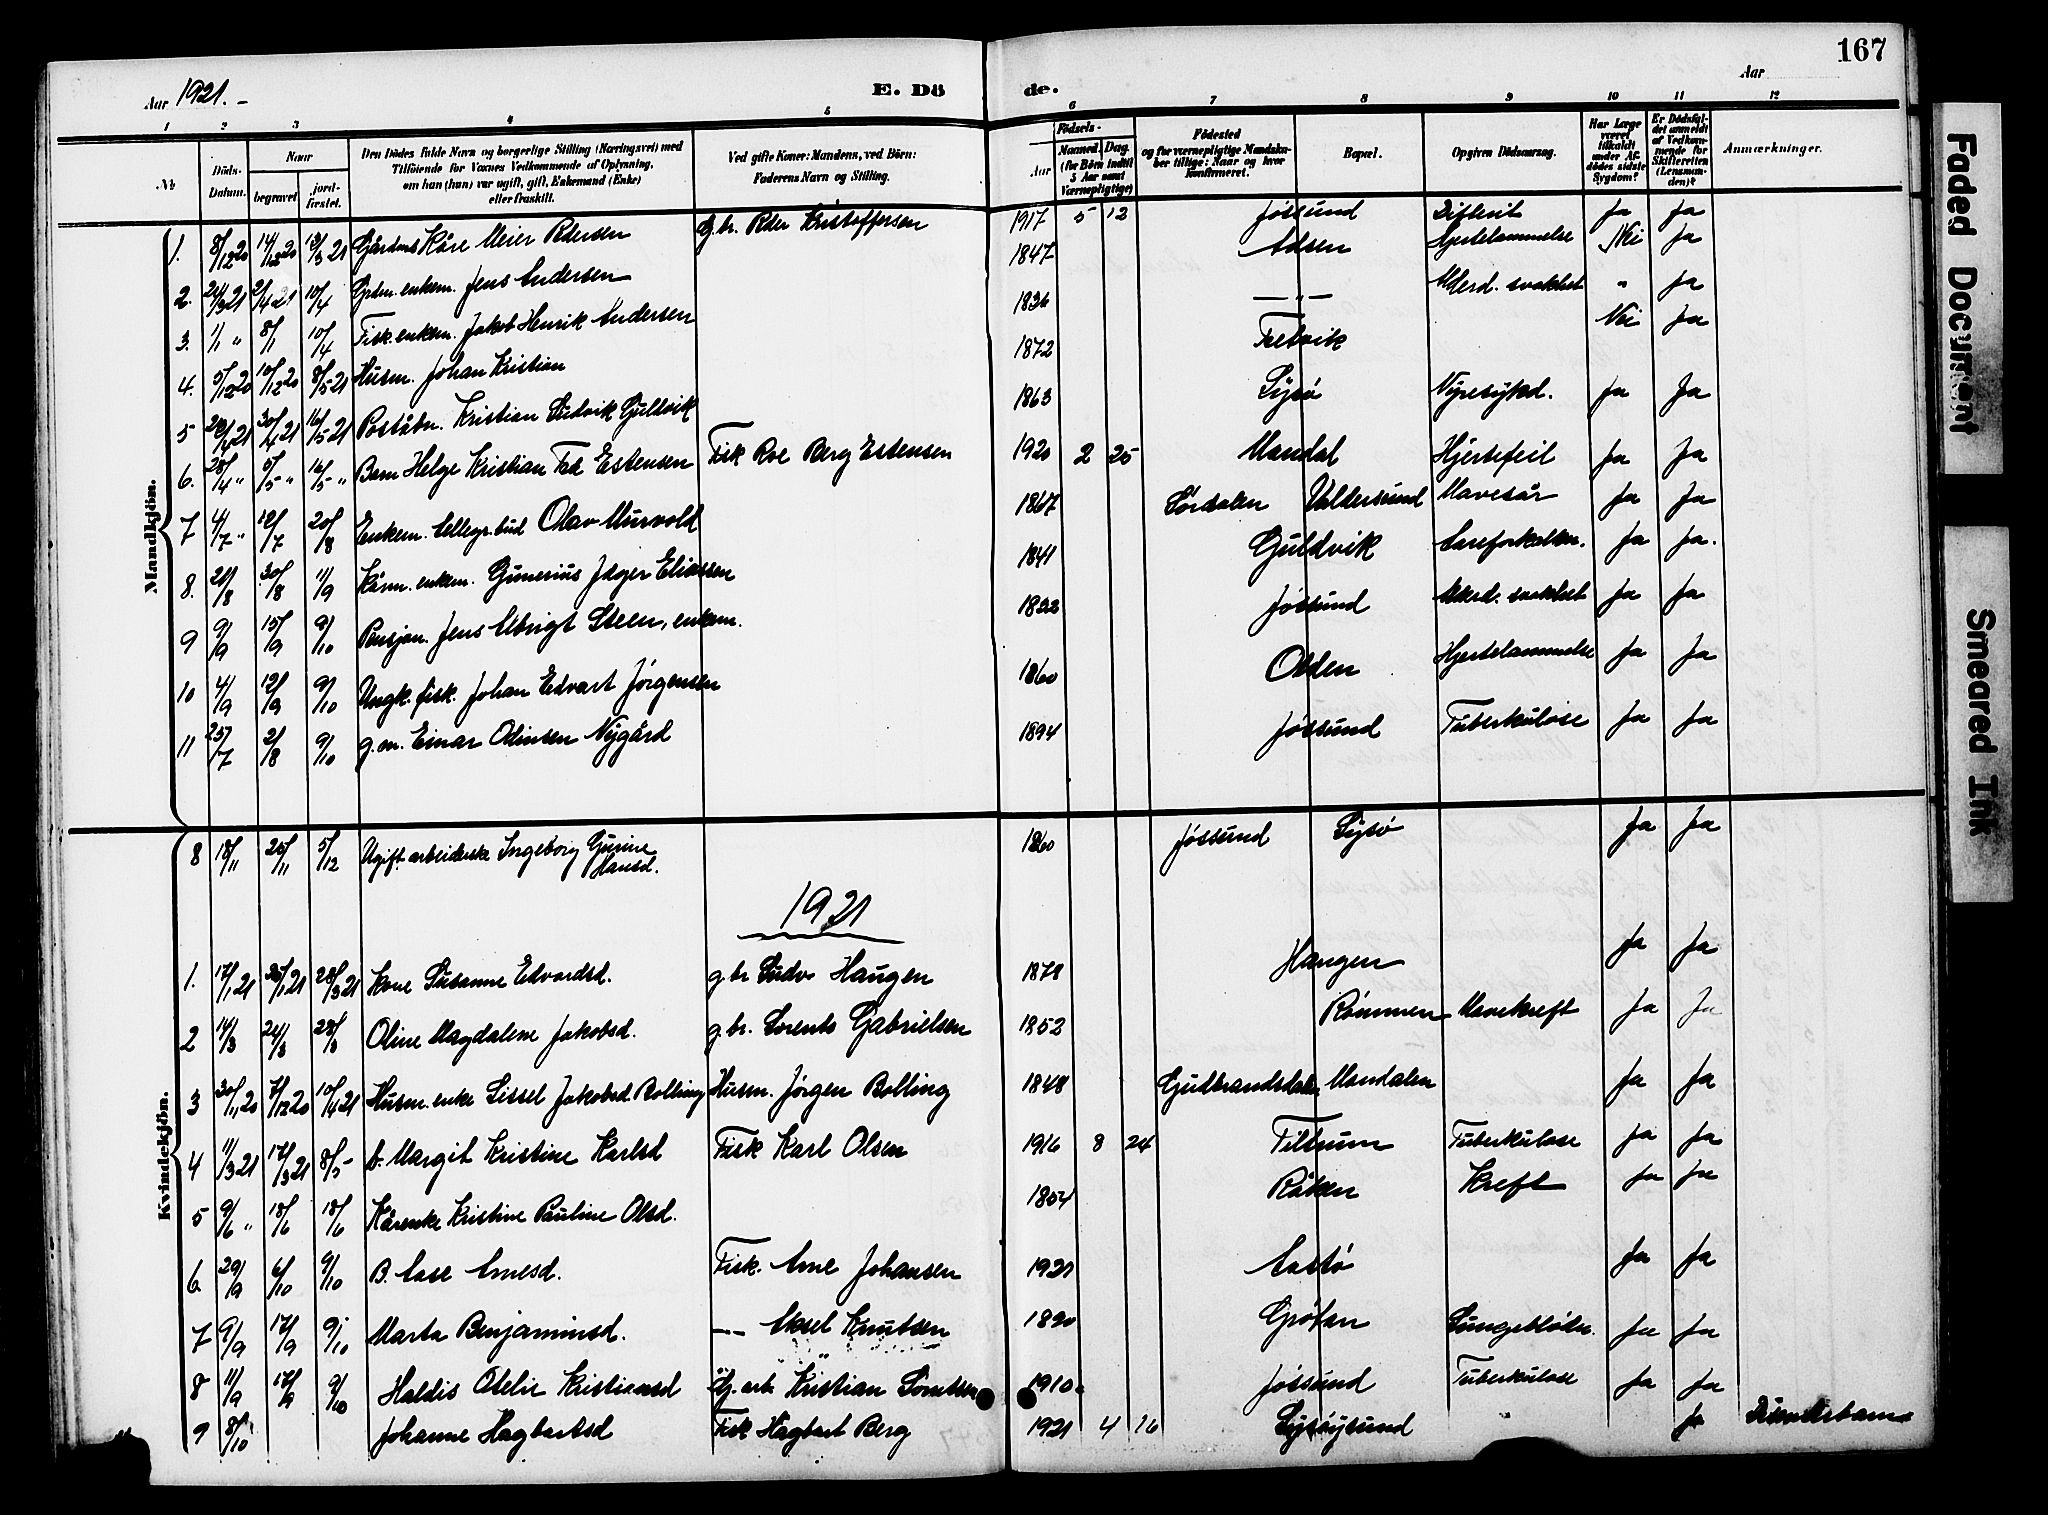 167
Aar 1921. -
E. Dö
de.
Aar
1 2 3 4 5 6 7 8 9 10 11 12
№
Döds-Datum.
Naar
begravet
jord-fæstet.
Den Dödes fulde Navn og borgerlige Stilling (Næringsvei) med Tilföiende for Voxnes Vedkommende af Oplysning, om han (hun) var ugift, gift, Enkemand (Enke) eller fraskilt.
Ved gifte Koner: Mandens, ved Börn: Faderens Navn og Stilling.
Födsels-
Aar
Maaned. Dag. (for Börn indtil 5 Aar samt Værnepligtige)
Födested og for værnepligtige Mandskaber tillige: Naar og hvor konfirmeret.
Bopæl.
Opgiven Dödsaarsag.
Har Læge været tilkaldt under Afdödes sidste Sygdom?
Er Dödsfaldet anmeldt af Vedkommende for Skifteretten (Lensmanden)?
Anmærkninger.
Mandkjön.
1. 8/12 20 14/12 20 13/3 21 Gårdms Kåre Meier Pedersen G.br. Peder Kristoffersen 1917 5 12 Jøssund Difterit Ja Ja
2. 24/3 21 2/4 21 10/4 Grdm. enkem. Jens Andersen 1847 Hjertelammelse Nei Ja
3. 1/1 " 8/1 10/4 Fisk. enkem. Jakob Henrik Andersen 1836 — " — Alderd. svakhet " Ja
4. 5/12 20 10/12 20 8/5 21 Husm. Johan Kristian 1872 Nei Ja
5 30/4 21 16/5 21 Poståbn. Kristian Ludvik Guldvik 1863 Lysø Nyresykd. Ja Ja
6. 28/4 " 5/5 " 16/5 " Barn Helge Kristian Estensen Fisk Roe Berg Estensen 1920 2 25 Mandal Hjertefeil Ja Ja
7 4/7 " 12/7 20/8 Enkem. Olav Murvold 1867 Sørdalen Valdersund Mavesår Ja Ja
8. 21/8 30/8 11/9 Kårm. enkem. Gunerius Jæger Eliassen 1841 Guldvik Ja Ja.
9 9/9 15/9 9/10 Pensjon. Jens Albrigt Steen, enkem. 1832 Jøssund Alderd. svakhet Ja Ja
10 4/9 12/9 9/10 Ungk. fisk. Johan Edvart Jørgensen 1860 Olden Hjertelammelse Ja Ja
11 25/7 2/8 9/10 g.m. Einar Odinsen Nygård 1894 Jøssund Tuberkulose Ja Ja
8 18/11 25/11 5/12 Ugift arbeiderske Ingeborg Gurine Hansd. 1860 Jøssund Lysø Ja Ja
1921
Kvindekjön.
1. 17/1 21 28/3 21 Kone Susanne Edvardsd. g.br Ludv. Haugen 1878 Haugen Ja Ja
2 14/3 24/3 28/3 Oline Magdalene Jakobsd. g.br. Lorents Gabrielsen 1852 Rømmen Mavekreft Ja Ja
3 30/11 20 7/12 20 10/4 21 Husm. enke Sissel Jakobsd. Bolling Husm. Jørgen Bolling 1848 Gudbrandsdalen Mandalen Ja Ja
4 11/3 21 17/3 21 8/5 - b. Margit Kristine Karlsd Fisk Karl Olsen 1916 8 24 Tiltrum Tuberkulose Ja Ja
5 9/6 " 18/6 18/6 Kårenke Kristine Pauline Olsd. 1854 Råken Kreft Ja Ja
6. 29/9 6/10 9/10 B. Aase Arnesd. Fisk. Arne Johansen 1921 Aastø Ja Ja
7 9/9 17/9 9/10 Marta Benjaminsd. — Aksel Knutsen 1890 Grøtan Lungeblødn. Ja Ja
8 11/9 17/9 9/10 Haldis Otelie Kristiansd Gj. arb. Kristian 1910 Jøssund Tuberkulose Ja Ja
9 8/10 Johanne Hagbartsd Fisk Hagbart Berg 1921 4 16 Lysøysund Ja
Faded Document
Smeared Ink